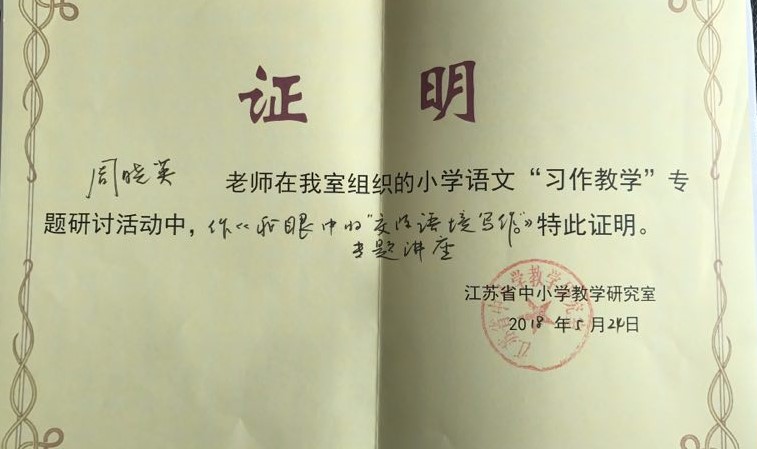 证 明
周晓英 老师在我室组织的小学语文“习作教学”专
题研讨活动中，作《我眼中的“交际语境写作”》特此证明。
专题讲座
江苏省中小学教学研究室
2018 年 5 月 24 日
江苏省中小学教学研究室